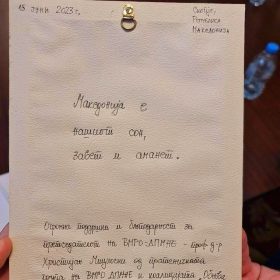 15 јуни 2023 г.
Скопје,
Република
Македонија
Македонија е
нашиот сон,
завет и аманет.
Огромна поддршка и благодарност за
претседателот на ВМРО-ДПМНЕ - проф. д-р
Христијан Мицкоски од пратеничката
група на ВМРО-ДПМНЕ и коалицијата.